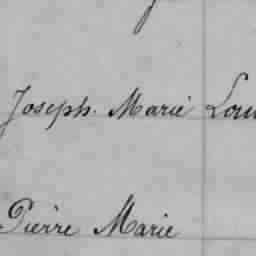 Joseph. Marie
Pierre Marie